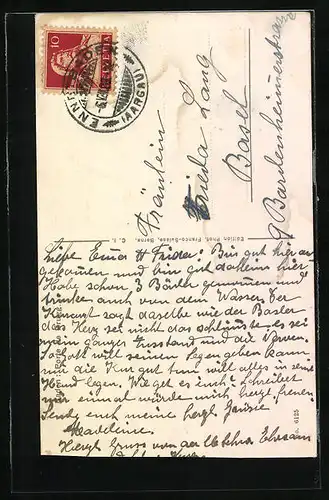 10
HELVETIA
ENNE
(AARGAU)
Fräulein
Frieda Lang
Basel
9 Bartenheimerstrasse
Edition Phot. Franco-Suisse, Berne.
No. 6125
Liebe Emma & Frieda! Bin gut hier an-
gekommen und bin gut daheim hier
Habe schon 3 Bäder genommen und
trinke auch von dem Wasser. Der
sagt daselbe wie der Basler
das Herz sei nicht das schlimste, es sei
mein ganzer Zustand und die Nerven.
So Gott will seinen Segen geben kann
mir die Kur gut tun will alles in seine
Hand legen. Wie get es euch? schreibet
mir einmal würde mich herzl. freuen.
Sende euch meine herzl Grüsse
Madeleine.
Herzl Gruss von der